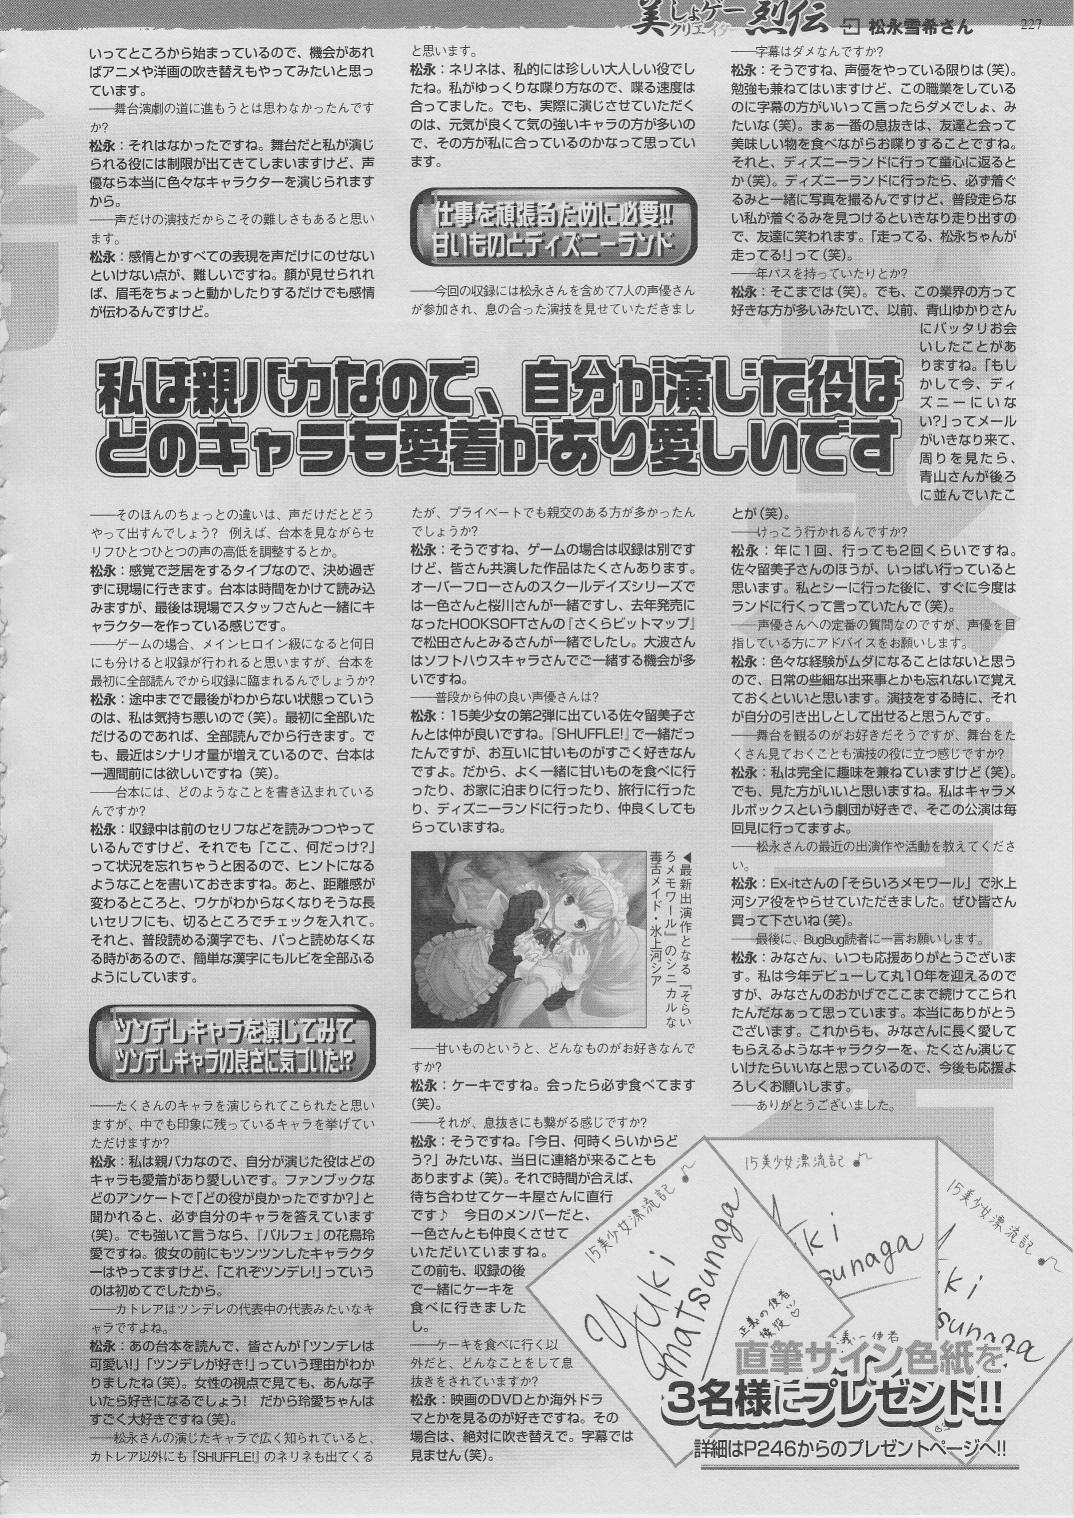 美しょゲー
クリエイター 烈伝
松永雪希さん
227
いってところから始まっているので、機会があれ
ばアニメや洋画の吹き替えもやってみたいと思っ
ています。
――舞台演劇の道に進もうとは思わなかったんです
か?
松永：それはなかったですね。舞台だと私が演じ
られる役には制限が出てきてしまいますけど、声
優なら本当に色々なキャラクターを演じられます
から。
――声だけの演技だからこその難しさもあると思い
ます。
松永：感情とかすべての表現を声だけにのせない
といけない点が、難しいですね。顔が見せられれ
ば、眉毛をちょっと動かしたりするだけでも感情
が伝わるんですけど。
と思います。
松永：ネリネは、私的には珍しい大人しい役でし
たね。私がゆっくりな喋り方なので、喋る速度は
合ってました。でも、実際に演じさせていただく
のは、元気が良くて気の強いキャラの方が多いの
で、その方が私に合っているのかなって思ってい
ます。
仕事を頑張るために必要!!
甘いものとディズニーランド
――今回の収録には松永さんを含めて7人の声優さん
が参加され、息の合った演技を見せていただきまし
――字幕はダメなんですか?
松永：そうですね、声優をやっている限りは(笑)。
勉強も兼ねてはいますけど、この職業をしている
のに字幕の方がいいって言ったらダメでしょ、み
たいな(笑)。まぁ一番の息抜きは、友達と会って
美味しい物を食べながらお喋りすることですね。
それと、ディズニーランドに行って童心に返ると
か(笑)。ディズニーランドに行ったら、必ず着ぐ
るみと一緒に写真を撮るんですけど、普段走らな
い私が着ぐるみを見つけるといきなり走り出すの
で、友達に笑われます。「走ってる、松永ちゃんが
走ってる!」って(笑)。
――年パスを持っていたりとか?
松永：そこまでは(笑)。でも、この業界の方って
好きな方が多いみたいで、以前、青山ゆかりさん
にバッタリお会
いしたことがあ
りますね。「もし
かして今、ディ
ズニーにいな
い?」ってメール
がいきなり来て、
周りを見たら、
青山さんが後ろ
に並んでいたこ
私は親バカなので、自分が演じた役は
どのキャラも愛着があり愛しいです
――そのほんのちょっとの違いは、声だけだとどう
やって出すんでしょう? 例えば、台本を見ながらセ
リフひとつひとつの声の高低を調整するとか。
松永：感覚で芝居をするタイプなので、決め過ぎ
ずに現場に行きます。台本は時間をかけて読み込
みますが、最後は現場でスタッフさんと一緒にキ
ャラクターを作っている感じです。
――ゲームの場合、メインヒロイン級になると何日
にも分けると収録が行われると思いますが、台本を
最初に全部読んでから収録に臨まれるんでしょうか?
松永：途中までで最後がわからない状態っていう
のは、私は気持ち悪いので(笑)。最初に全部いた
だけるのであれば、全部読んでから行きます。で
も、最近はシナリオ量が増えているので、台本は
一週間前には欲しいですね (笑)。
――台本には、どのようなことを書き込まれている
んですか?
松永：収録中は前のセリフなどを読みつつやって
いるんですけど、それでも「ここ、何だっけ?」
って状況を忘れちゃうと困るので、ヒントになる
ようなことを書いておきますね。あと、距離感が
変わるところと、ワケがわからなくなりそうな長
いセリフにも、切るところでチェックを入れて。
それと、普段読める漢字でも、パっと読めなくな
る時があるので、簡単な漢字にもルビを全部ふる
ようにしています。
ツンデレキャラを演じてみて
ツンデレキャラの良さに気づいた!?
――たくさんのキャラを演じられてこられたと思い
ますが、中でも印象に残っているキャラを挙げてい
ただけますか?
松永：私は親バカなので、自分が演じた役はどの
キャラも愛着があり愛しいです。ファンブックな
どのアンケートで「どの役が良かったですか?」と
聞かれると、必ず自分のキャラを答えています
(笑)。でも強いて言うなら、『パルフェ』の花鳥玲
愛ですね。彼女の前にもツンツンしたキャラクタ
ーはやってますけど、「これぞツンデレ!」っていう
のは初めてでしたから。
――カトレアはツンデレの代表中の代表みたいなキ
ャラですよね。
松永：あの台本を読んで、皆さんが「ツンデレは
可愛い!」「ツンデレが好き!」っていう理由がわか
りましたね(笑)。女性の視点で見ても、あんな子
いたら好きになるでしょう! だから玲愛ちゃんは
すごく大好きですね(笑)。
――松永さんの演じたキャラで広く知られていると、
カトレア以外にも『SHUFFLE!』のネリネも出てくる
たが、プライベートでも親交のある方が多かったん
でしょうか?
松永：そうですね、ゲームの場合は収録は別です
けど、皆さん共演した作品はたくさんあります。
オーバーフローさんのスクールデイズシリーズで
は一色さんと桜川さんが一緒ですし、去年発売に
なったHOOKSOFTさんの『さくらビットマップ』
で松田さんとみるさんが一緒でしたし。大波さん
はソフトハウスキャラさんでご一緒する機会が多
いですね。
――普段から仲の良い声優さんは?
松永：15美少女の第2弾に出ている佐々留美子さ
んとは仲が良いですね。『SHUFFLE!』で一緒だっ
たんですが、お互いに甘いものがすごく好きなん
ですよ。だから、よく一緒に甘いものを食べに行
ったり、お家に泊まりに行ったり、旅行に行った
り、ディズニーランドに行ったり、仲良くしても
らっていますね。
◀最新出演作となる『そらい
ろメモワール』のシニカルな
毒舌メイド・氷上河シア
――甘いものというと、どんなものがお好きなんで
すか?
松永：ケーキですね。会ったら必ず食べてます
(笑)。
――それが、息抜きにも繋がる感じですか?
松永：そうですね。「今日、何時くらいからど
う?」みたいな、当日に連絡が来ることも
ありますよ(笑)。それで時間が合えば、
待ち合わせてケーキ屋さんに直行
です♪ 今日のメンバーだと、
一色さんとも仲良くさせて
いただいていますね。
この前も、収録の後
で一緒にケーキを
食べに行きました
し。
――ケーキを食べに行く以
外だと、どんなことをして息
抜きをされていますか?
松永：映画のDVDとか海外ドラ
マとかを見るのが好きですね。その
場合は、絶対に吹き替えで。字幕では
見ません(笑)。
とが(笑)。
――けっこう行かれるんですか?
松永：年に1回、行っても2回くらいですね。
佐々留美子さんのほうが、いっぱい行っていると
思います。私とシーに行った後に、すぐに今度は
ランドに行くって言っていたんで(笑)。
――声優さんへの定番の質問なのですが、声優を目
指している方にアドバイスをお願いします。
松永：色々な経験がムダになることはないと思う
ので、日常の些細な出来事とかも忘れないで覚え
ておくといいと思います。演技をする時に、それ
が自分の引き出しとして出せると思うんです。
――舞台を観るのがお好きだそうですが、舞台をた
くさん見ておくことも演技の役に立つ感じですか?
松永：私は完全に趣味を兼ねていますけど(笑)。
でも、見た方がいいと思いますね。私はキャラメ
ルボックスという劇団が好きで、そこの公演は毎
回見に行ってますよ。
――松永さんの最近の出演作や活動を教えてくださ
い。
松永：Ex-itさんの「そらいろメモワール」で氷上
河シア役をやらせていただきました。ぜひ皆さん
買って下さいね(笑)。
――最後に、BugBug読者に一言お願いします。
松永：みなさん、いつも応援ありがとうございま
す。私は今年デビューして丸10年を迎えるので
すが、みなさんのおかげでここまで続けてこられ
たんだなぁって思っています。本当にありがとう
ございます。これからも、みなさんに長く愛して
もらえるようなキャラクターを、たくさん演じて
いけたらいいなと思っているので、今後も応援よ
ろしくお願いします。
――ありがとうございました。
15美少女漂流記♪
Yuki
matsunaga
正義の使者
15美少女漂流記♪
ki
sunaga
15美少女漂流記♪
ki
sunaga
直筆サイン色紙を
3名様にプレゼント!!
詳細はP246からのプレゼントページへ!!